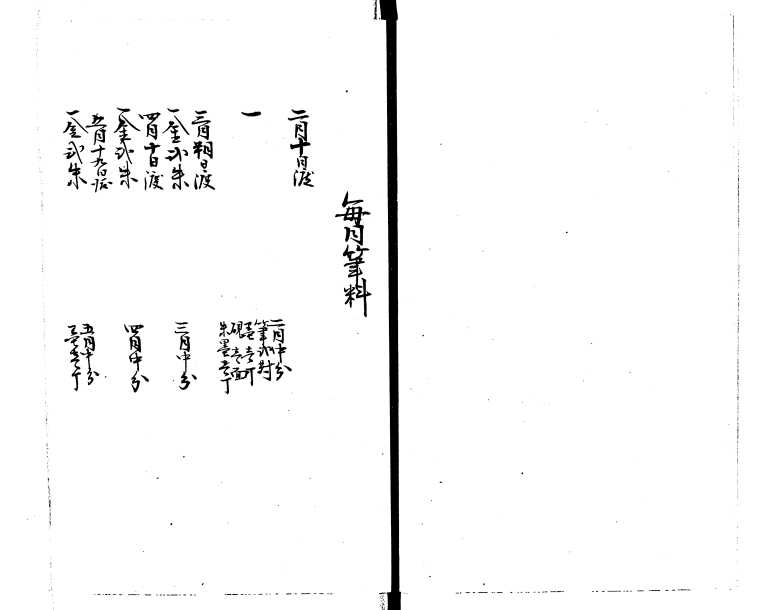 毎月筆料
二月十日渡
一
二月中分
筆弐対
墨壱丁
硯壱面
朱墨壱丁
三月朔日渡
一金弐朱
三月中分
四月十日渡
一金弐朱
四月中分
五月十九日渡
一金弐朱
五月中分
墨壱丁